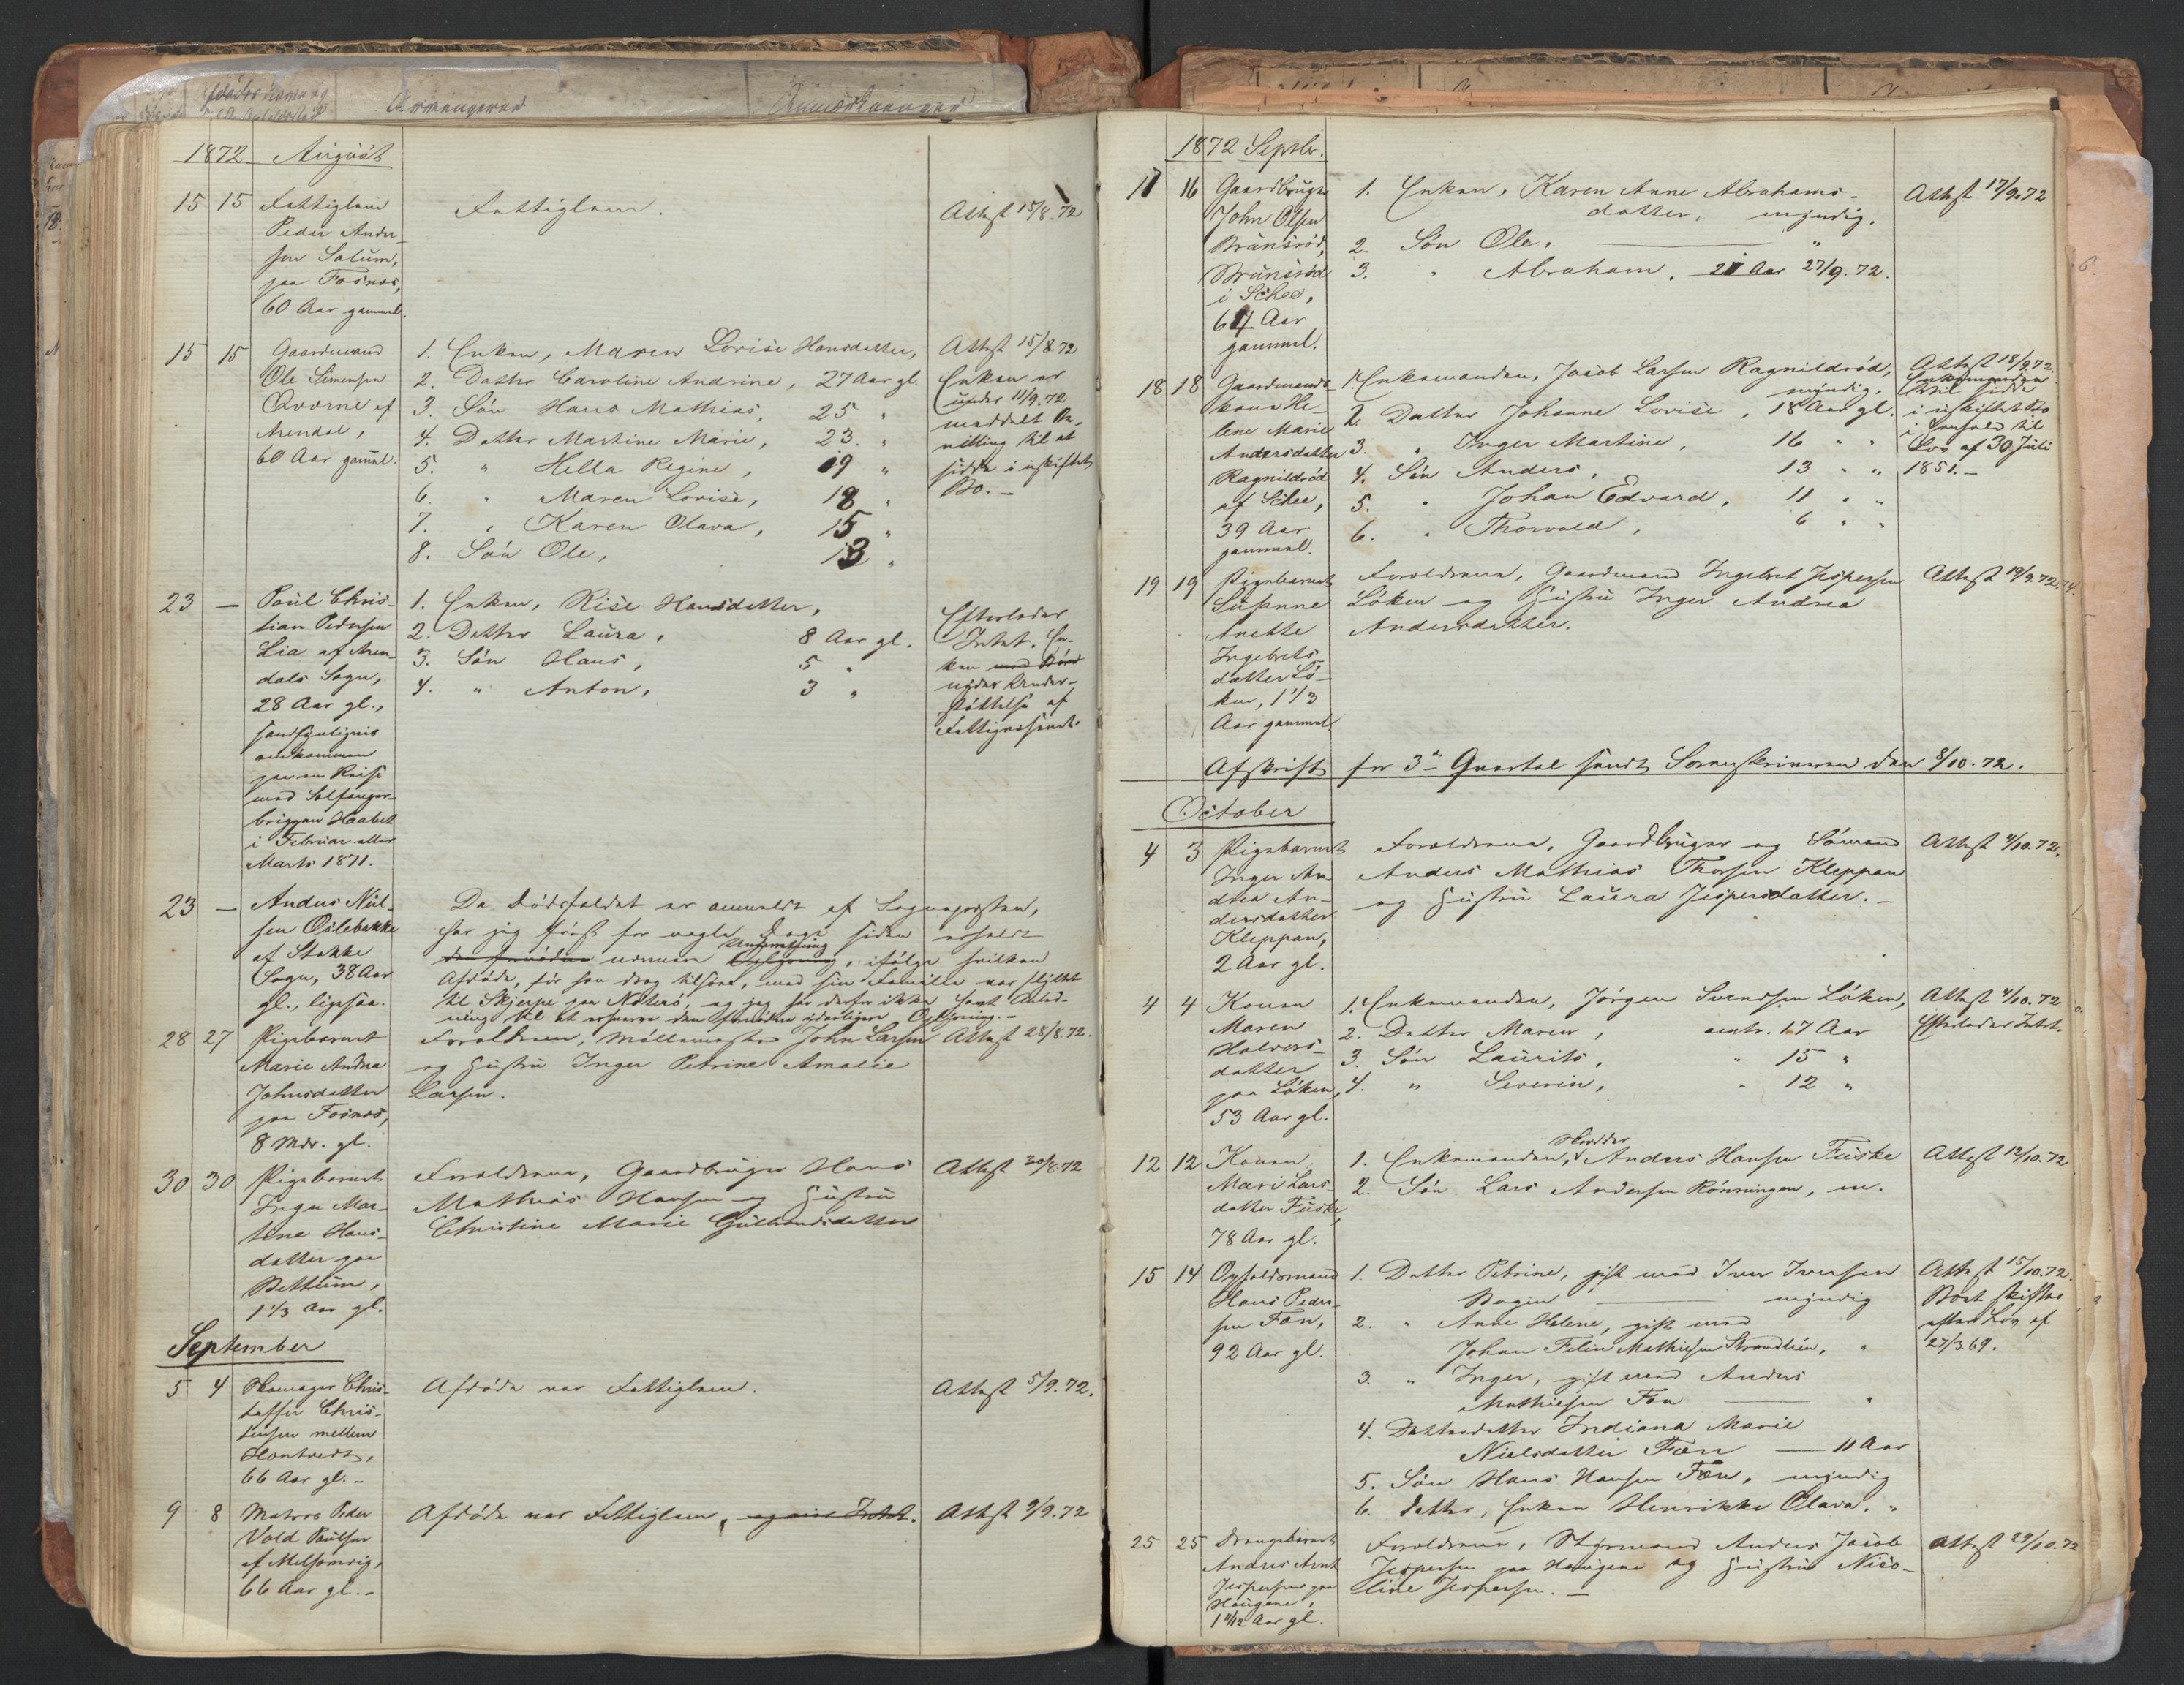 1872 August
15 15 Fattiglem Fattiglem. Attest 15/8.72
Peder Ander-
sen Solum,
paa Fosnæs,
60 Aar gammel.
15 15 Gaardmand 1. Enken, Maren Lovise Hansdatter, Attest 15/8.72
Ole Simensen 2. Datter Caroline Andrine, 27 Aar gl. Enken er
af 3. Søn Hans Mathias, 25 " under 11/9.72
Arendal, 4. Datter Martine Marie, 23. " meddelt Be-
60 Aar gammel. 5. " Hella Regine, 19 " villing til at
6. " Maren Lovise, 18 " sidde i uskiftet
7. " Karen Olava, 15 " Bo. -
8. Søn Ole, 13 "
23 - Paul Chris- 1. Enken, Risè Hansdatter, Efterlader
tian Pedersen 2. Datter Laura, 8 Aar gl. Intet. En-
Lia af Aren- 3. Søn Hans, 5 " ken med Børn
dals Sogn, 4. " Anton, 3 " nyder Under-
28 Aar gl., støttelse af
sandsynligvis Fattigvæsenet
omkommen
paa en Reise
med Selfanger-
briggen Haabet
i Februar eller
Marts 1871.
23 - Anders Niel- Da Dødsfaldet er anmeldt af Sognepresten,
sen Oslebakke har jeg først for nogle Dage siden erholdt
af Stokke den fornødne nærmere Oplysning Underretning, ifølge hvilken
Sogn, 38 Aar Afdøde, før han drog tilsøes, med sin Familie var flyttet
gl., ligesaa. til Skjerpe paa Nøterø, og jeg har derfor ikke havt Anled-
ning til at erhverve den fornødne yderligere Oplysning. -
28 27 Pigebarnet Forældrene, Møllemester John Larsen Attest 28/8.72.
Marie Andrea og Hustru Inger Petrine Amalie
Johnsdatter Larsen.
paa Fosnæs,
8 Mdr. gl.
30 30 Pigebarnet Forældrene, Gaardbruger Hans Attest 30/8.72
Inger Mar- Mathias Hansen og Hustru
tine Hans- Christine Marie Gulbrandsdatter
datter paa
1 1/3 Aar gl.
September
5 4 Skomager Chris- Afdøde var Fattiglem. Attest 5/9.72.
toffer Chris-
tensen mellem
Hontvedt,
66 Aar gl. -
9 8 Matros Peder Afdøde var Fattiglem, og eier Intet. Attest 9/9.72
Vold Paulsen
af Melsomvig,
66 Aar gl. -
1872 Septbr.
17 16 Gaardbruger 1. Enken, Karen Anne Abrahams- Attest 17/9.72
John Olsen datter, myndig.
Brunsrød, 2. Søn Ole, "
Brunsrød 3. " Abraham, 21 Aar 27/9.72.
i Schee,
64 Aar
gammel.
18 18 Gaardmands- 1. Enkemanden, Jacob Larsen Ragnildrød, Attest 18/9.72.
kone He- myndig. Enkemanden
lene Marie 2. Datter Johanne Lovise, 18 Aar gl. vil sidde
Andersdatter 3. " Inger Martine, 16 " " i uskiftet Bo
Ragnildrød 4. Søn Anders, 13 " " i Henhold til
af Schee, 5. " Johan Edvard, 11 " " Lov af 30 Juli
39 Aar 6. " Thorvald, 6 " " 1851. -
gammel.
19 19 Pigebarnet Forældrene, Gaardmand Ingebret Jespersen Attest 19/9.72
Susanne Løken og Hustru Inger Andrea
Anette Andersdatter.
Ingebrets-
datter Lø-
ken, 1 1/3
Aar gammel.
Afskrift for 3die Qvartal sendt Sorenskriveren den 8/10.72.
October
4 3 Pigebarnet Forældrene, Gaardbruger og Sømand Attest 4/10.72.
Inger An- Anders Mathias Thorsen Kleppan
drea An- og Hustru Laura Jespersdatter. -
dersdatter
Kleppan,
2 Aar gl.
4 4 Konen 1. Enkemanden, Jørgen Svendsen Løken, Attest 4/10.72
Maren 2. Datter Maren, omtr. 17 Aar Efterlader Intet.
Halvors- 3. Søn Laurits, " 15 "
datter 4. " Severin, " 12 "
paa Løken,
53 Aar gl.
12 12 Konen 1. Enkemanden, Anders Hansen Fuske Attest 12/10.72
Mari Lars- 2. Søn Lars Andersen Rønningen, m.
datter Fuske,
78 Aar gl.
15 14 Opholdsmand 1. Datter Petrine, gift med Iver Iversen Attest 15/10.72.
Hans Peder- Bogen myndig Boet skiftes
sen Fæn, 2. " Anne Helene, gift med efter Lov af
92 Aar gl. Johan Mathiesen " 27/3 69.
3. " Inger, gift med Anders
Mathiesen Fæn "
4. Datterdatter Indiana Marie
Nielsdatter Fæn - 11 Aar
5. Søn Hans Hansen Fæn, myndig
6. Datter, Enken Henrikke Olava. "
25 25 Drengebarnet Forældrene, Styrmand Anders Jacob Attest 29/10.72
Anders Arnt Jespersen paa Haugene og Hustru Nico-
Jespersen paa line Jespersen. -
Haugene,
1 Aar gl.